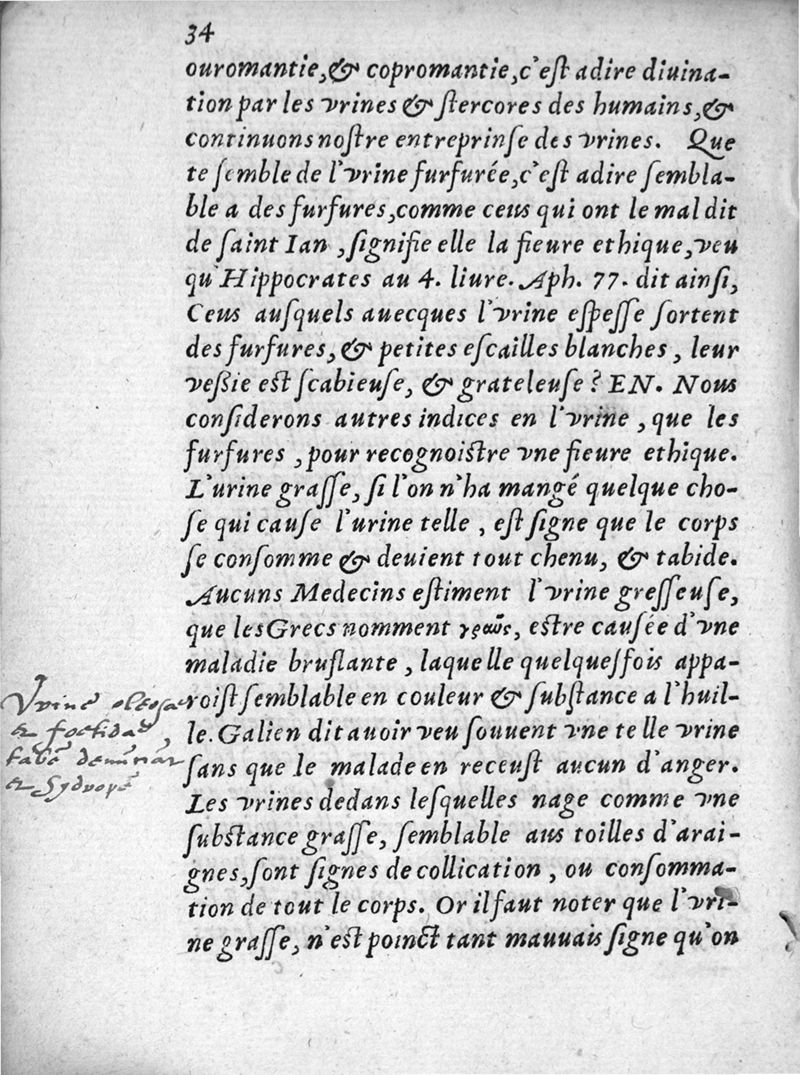 34
ouromantie,& copromantie,c'eſt adire diuina-
tion par les vrines & ſtercores des humains,&
continuons noſtre entreprinſe des vrines. Que
te ſemble de l'vrine furfurée,c'eſt adire ſembla-
ble a des furfures,comme ceus qui ont le mal dit
de ſaint Ian ,ſignifie elle la fieure ethique,veu
qu'Hippocrates au 4. liure. Aph. 77. dit ainſi,
Ceus auſquels auecques l'vrine eſpeſſe ſortent
des furfures,& petites eſcailles blanches, leur
veſsie eſt ſcabieuſe, & grateleuſe? EN. Nous
conſiderons autres indices en l'vrine ,que les
furfures ,pour recognoiſtre vne fieure ethique.
L'urine graſſe, ſi l'on n'ha mangé quelque cho-
ſe qui cauſe l'urine telle , eſt ſigne que le corps
ſe conſomme & deuient tout chenu, & tabide.
Aucuns Medecins eſtiment l'vrine greſſeuſe,
que les Grecs nomment eſtre cauſée d'vne
maladie bruſlante , laquelle quelqueſfois appa-
roiſt ſemblable en couleur & ſubſtance a l'huil-
le. Galien dit auoir veu ſouuent vne telle vrine
ſans que le malade en receuſt aucun d'anger.
Les vrines dedans leſquelles nage comme vne
ſubſtance graſſe, ſemblable aus toilles d'arai-
gnes,ſont ſignes de collication , ou conſomma-
tion de tout le corps. Or il faut noter que l'vri-
ne graſſe, n'eſt poinct tant mauuais ſigne qu'on
Vrine
&
&